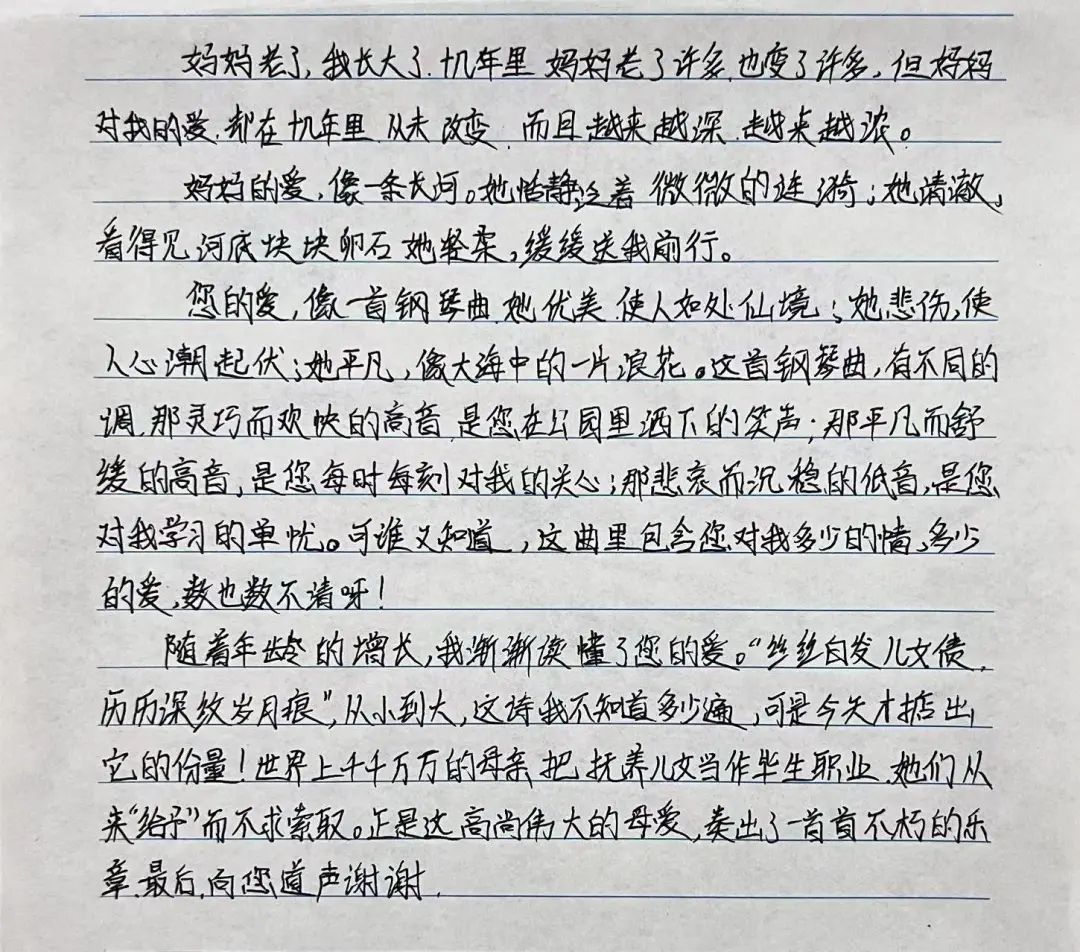 妈妈老了,我长大了.十几年里 妈妈老了许多.也变了许多,但妈妈
对我的爱.却在十几年里.从未改变.而且越来越深.越来越浓。
妈妈的爱,像一条长河。她恬静泛着微微的涟漪;她清澈,
看得见河底块块卵石 她轻柔,缓缓送我前行。
您的爱,像一首钢琴曲.她优美.使人如处仙境;她悲伤,使
人心潮起伏;她平凡,像大海中的一片浪花。这首钢琴曲,有不同的
调.那灵巧而欢快的高音.是您在公园里洒下的笑声;那平凡而舒
缓的高音,是您每时每刻对我的关心;那悲哀而沉稳的低音,是您
对我学习的单忧。可谁又知道,这曲里包含您对我多少的情,多少
的爱,数也数不清呀!
随着年龄的增长,我渐渐读懂了您的爱。“丝丝白发儿女债,
历历深纹岁月痕”,从小到大,这诗我不知道多少遍,可是今天才掂出
它的份量!世界上千千万万的母亲.把抚养儿女当作毕生职业.她们从
来“给予”而不求索取。正是这高尚伟大的母爱,奏出了一首首不朽的乐
章.最后.向您道声谢谢.